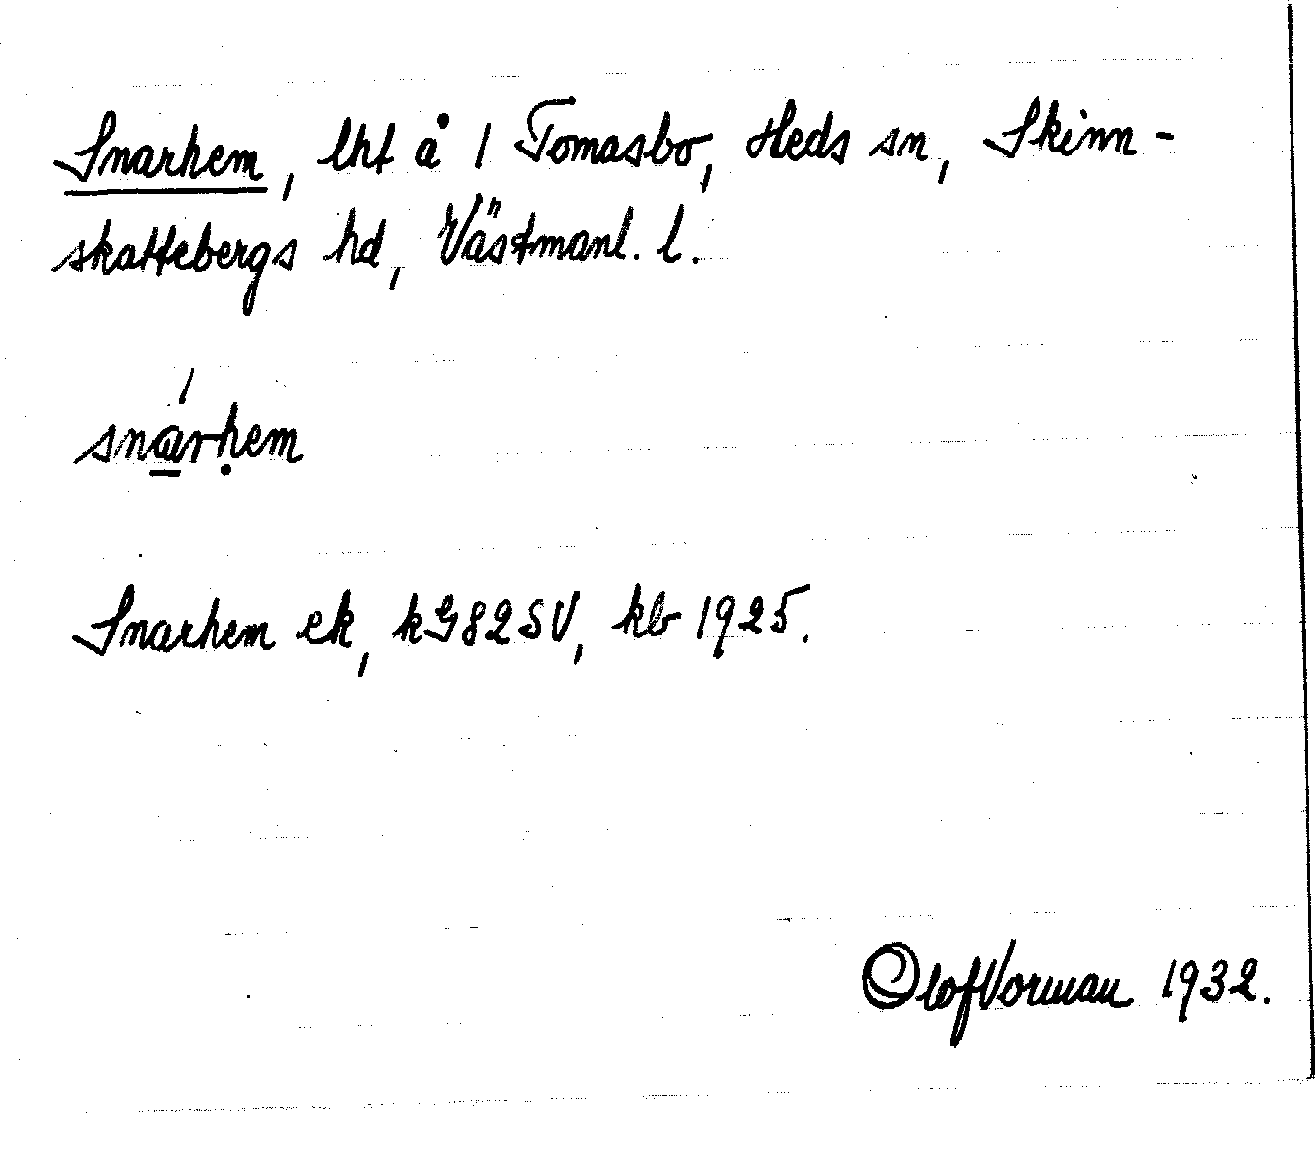 Snarhem, lht å 1 Tomasbo, Heds sn, Skinn-
skattebergs hd, Västmanl. l.
snárḥem
Snarhem ek, kG82SV, kb 1925.
Olof Vorman 1932.